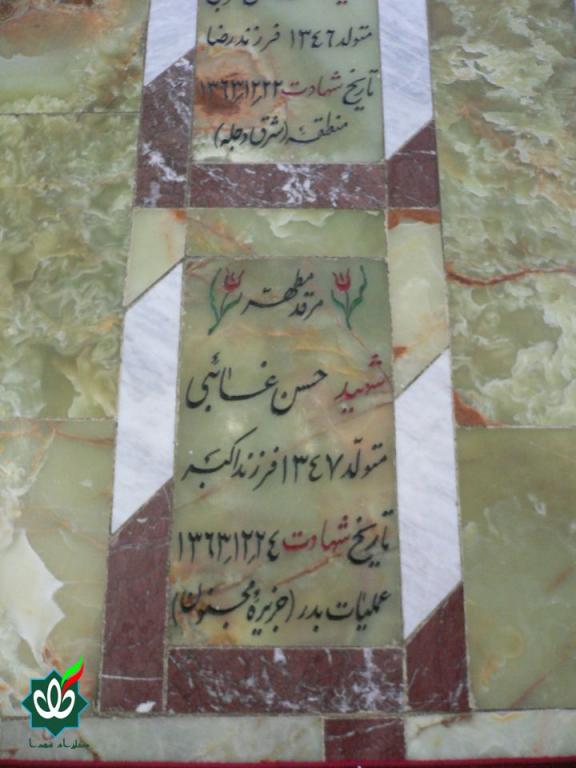 متولد ۱۳۴۶ فرزند رضا
تاریخ شهادت ۱۳۶۳٫۱۲٫۲۲
منطقه (شرق دجله)
مرقد مطهّر
شهید حسن غائبی
متولّد ۱۳۴۷ فرزند اکبر
تاریخ شهادت ۱۳۶۳٫۱۲٫۲۴
عملیات بدر (جزیرهٔ مجنون)